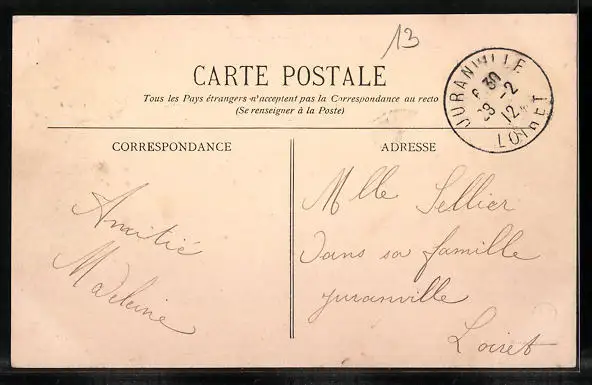 13
CARTE POSTALE
Tous les Pays étrangers n'acceptent pas la Correspondance au recto
(Se renseigner à la Poste)
JURANVILLE
8 30
28 -2
12
LOIRET
CORRESPONDANCE
Amitié
Madeleine
ADRESSE
Mlle Sellier
Dans sa famille
Juranville
Loiret